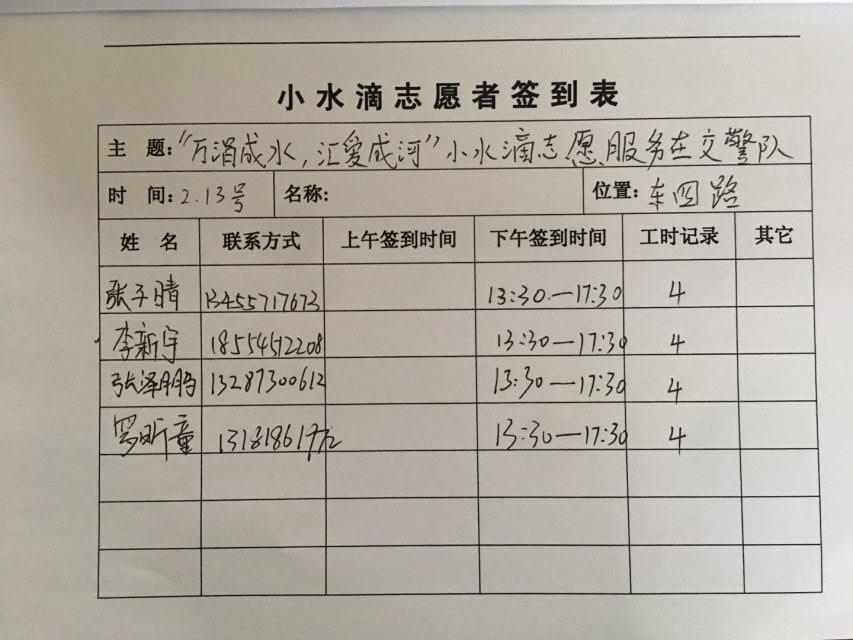 小水滴志愿者签到表
主 题:“万涓成水,汇爱成河”小水滴志愿服务在交警队
时 间:2.13号 名称: 位置:东四路
姓 名 联系方式 上午签到时间 下午签到时间 工时记录 其它
张子晴 13455717673 13:30—17:30 4
李新宇 18554512208 13:30—17:30 4
张泽鹏 13287300612 13:30—17:30 4
罗昕童 13:30—17:30 4